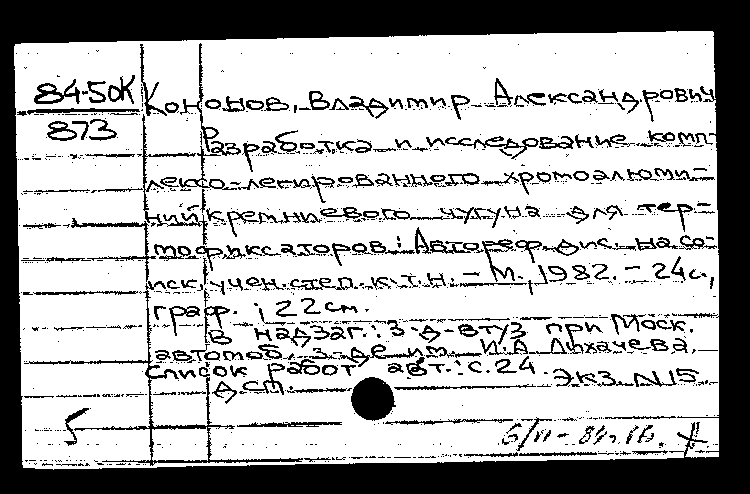 84-50К
873
Кононов, Владимир Александрович
Разработка и исследование комп-
лексо-легированного хромоалюми-
нийкремниевого чугуна для тер-
мофиксаторов: Автореф. дис. на со-
иск. учен. степ. к.т.н. - М., 1982. - 24с.,
граф. ; 22 см.
В надзаг.: З-д-втуз при Моск.
автомоб. з-де им. И.А Лихачева.
Список работ авт.: с.24.
ЭКЗ. N 15
ДСП.
5